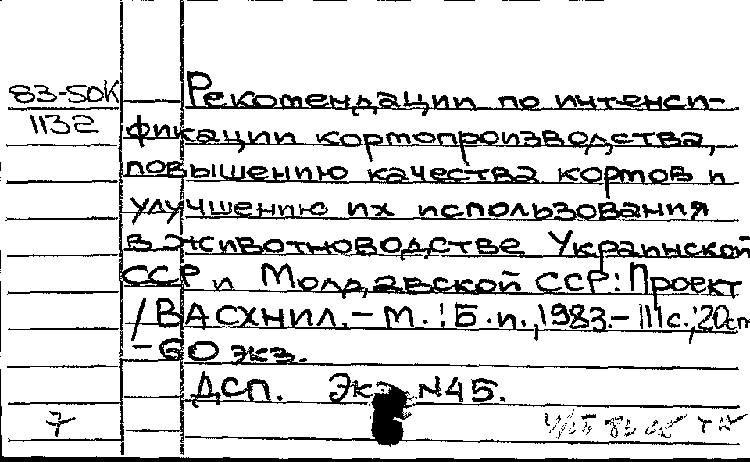 83-50К Рекомендации по интенси-
1132 фикации кормопроизводства,
повышению качества кормов и
улучшению их использования
в животноводстве Украинской
ССР и Молдавской ССР: Проект
/ВАСХНИЛ.-М.:Б.и.,1983.-111с.;20см
-60 экз.
ДСП. Экз N45.
7